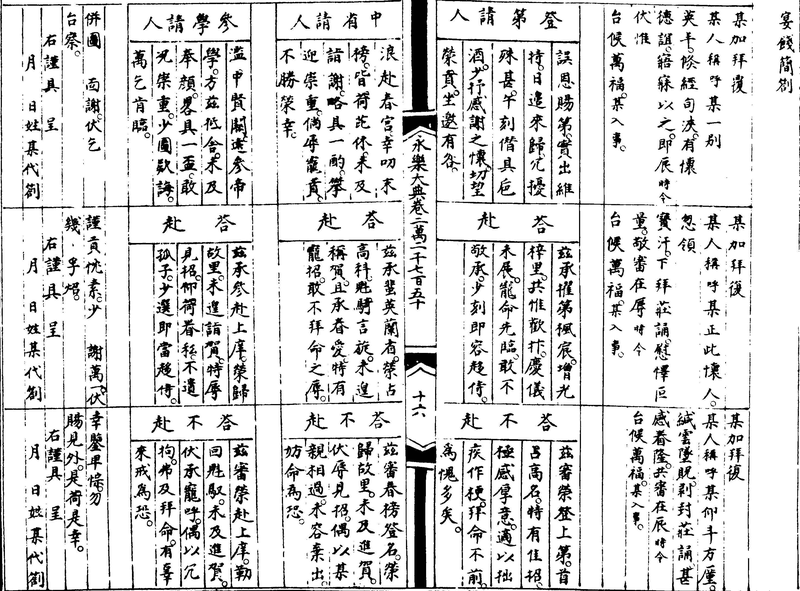 宴餞簡劄
某加拜覆
某人稱呼某一别
英丰倏經旬浹有懷
德誼寤寐以之即辰時令
伏惟
台候萬福某入事
登第請人
誤恩賜第實出維
持日邊來歸冗擾
殊甚午刻借具卮
酒少抒感謝之懷切望
榮賁坐邀有咎
永樂大典卷二萬二千七百五十
十六
中省請人
浪赴春宮幸叨末
榜皆荷芘休未及
詣謝略具一酌攀
迎崇重倘辱寵賁
不勝榮幸
參學請人
濫中賢關進參帝
學方茲抵舍未及
奉顔畧具一盃敢
况崇重少圖欵誨
萬乞肯臨
併圖 面謝伏乞
台察
右謹具 呈
月 日姓某代劄
某加拜復
某人稱呼某正此懷人
忽領
寳汗下拜莊誦慰懌叵
量敬審在辱時令
台候萬福某入事
答赴
茲承擢第楓宸增光
梓里共惟歡忭慶儀
未展寵命先臨敢不
敬承少刻即容趨侍
答赴
茲承蜚英蘭省榮占
高科甡騎言旋未遑
稱賀且承眷愛特有
寵招敢不拜命之辱
答赴
茲承參赴上庠榮歸
故里未進詣賀特辱
見招仰荷眷私不遺
孤子少選即當趨侍
謹貢忱素少 謝萬一伏
幾 孚炤
右謹具 呈
月 日姓某代劄
某加拜復
某人稱呼某仰斗方厪
緘雲墜貺剥封莊誦甚
感眷隆共審在辰時令
台候萬福某入事
答不赴
茲審榮登上第首
占高名特有佳招
極感厚意適以拙
疾作梗拜命不前
為愧多矣
答不赴
茲審春榜登名榮
歸故里未及進賀
伏辱見招偶以某
親相過未容棄出
妨命為恐
答不赴
茲審榮赴上庠勒
回甡馭未及進賀
伏承寵呼偶以冗
拘弗及拜命有辜
來戒為恐
幸鑒畢悰勿
賜見外是荷是幸
右謹具 呈
月 日姓某代劄